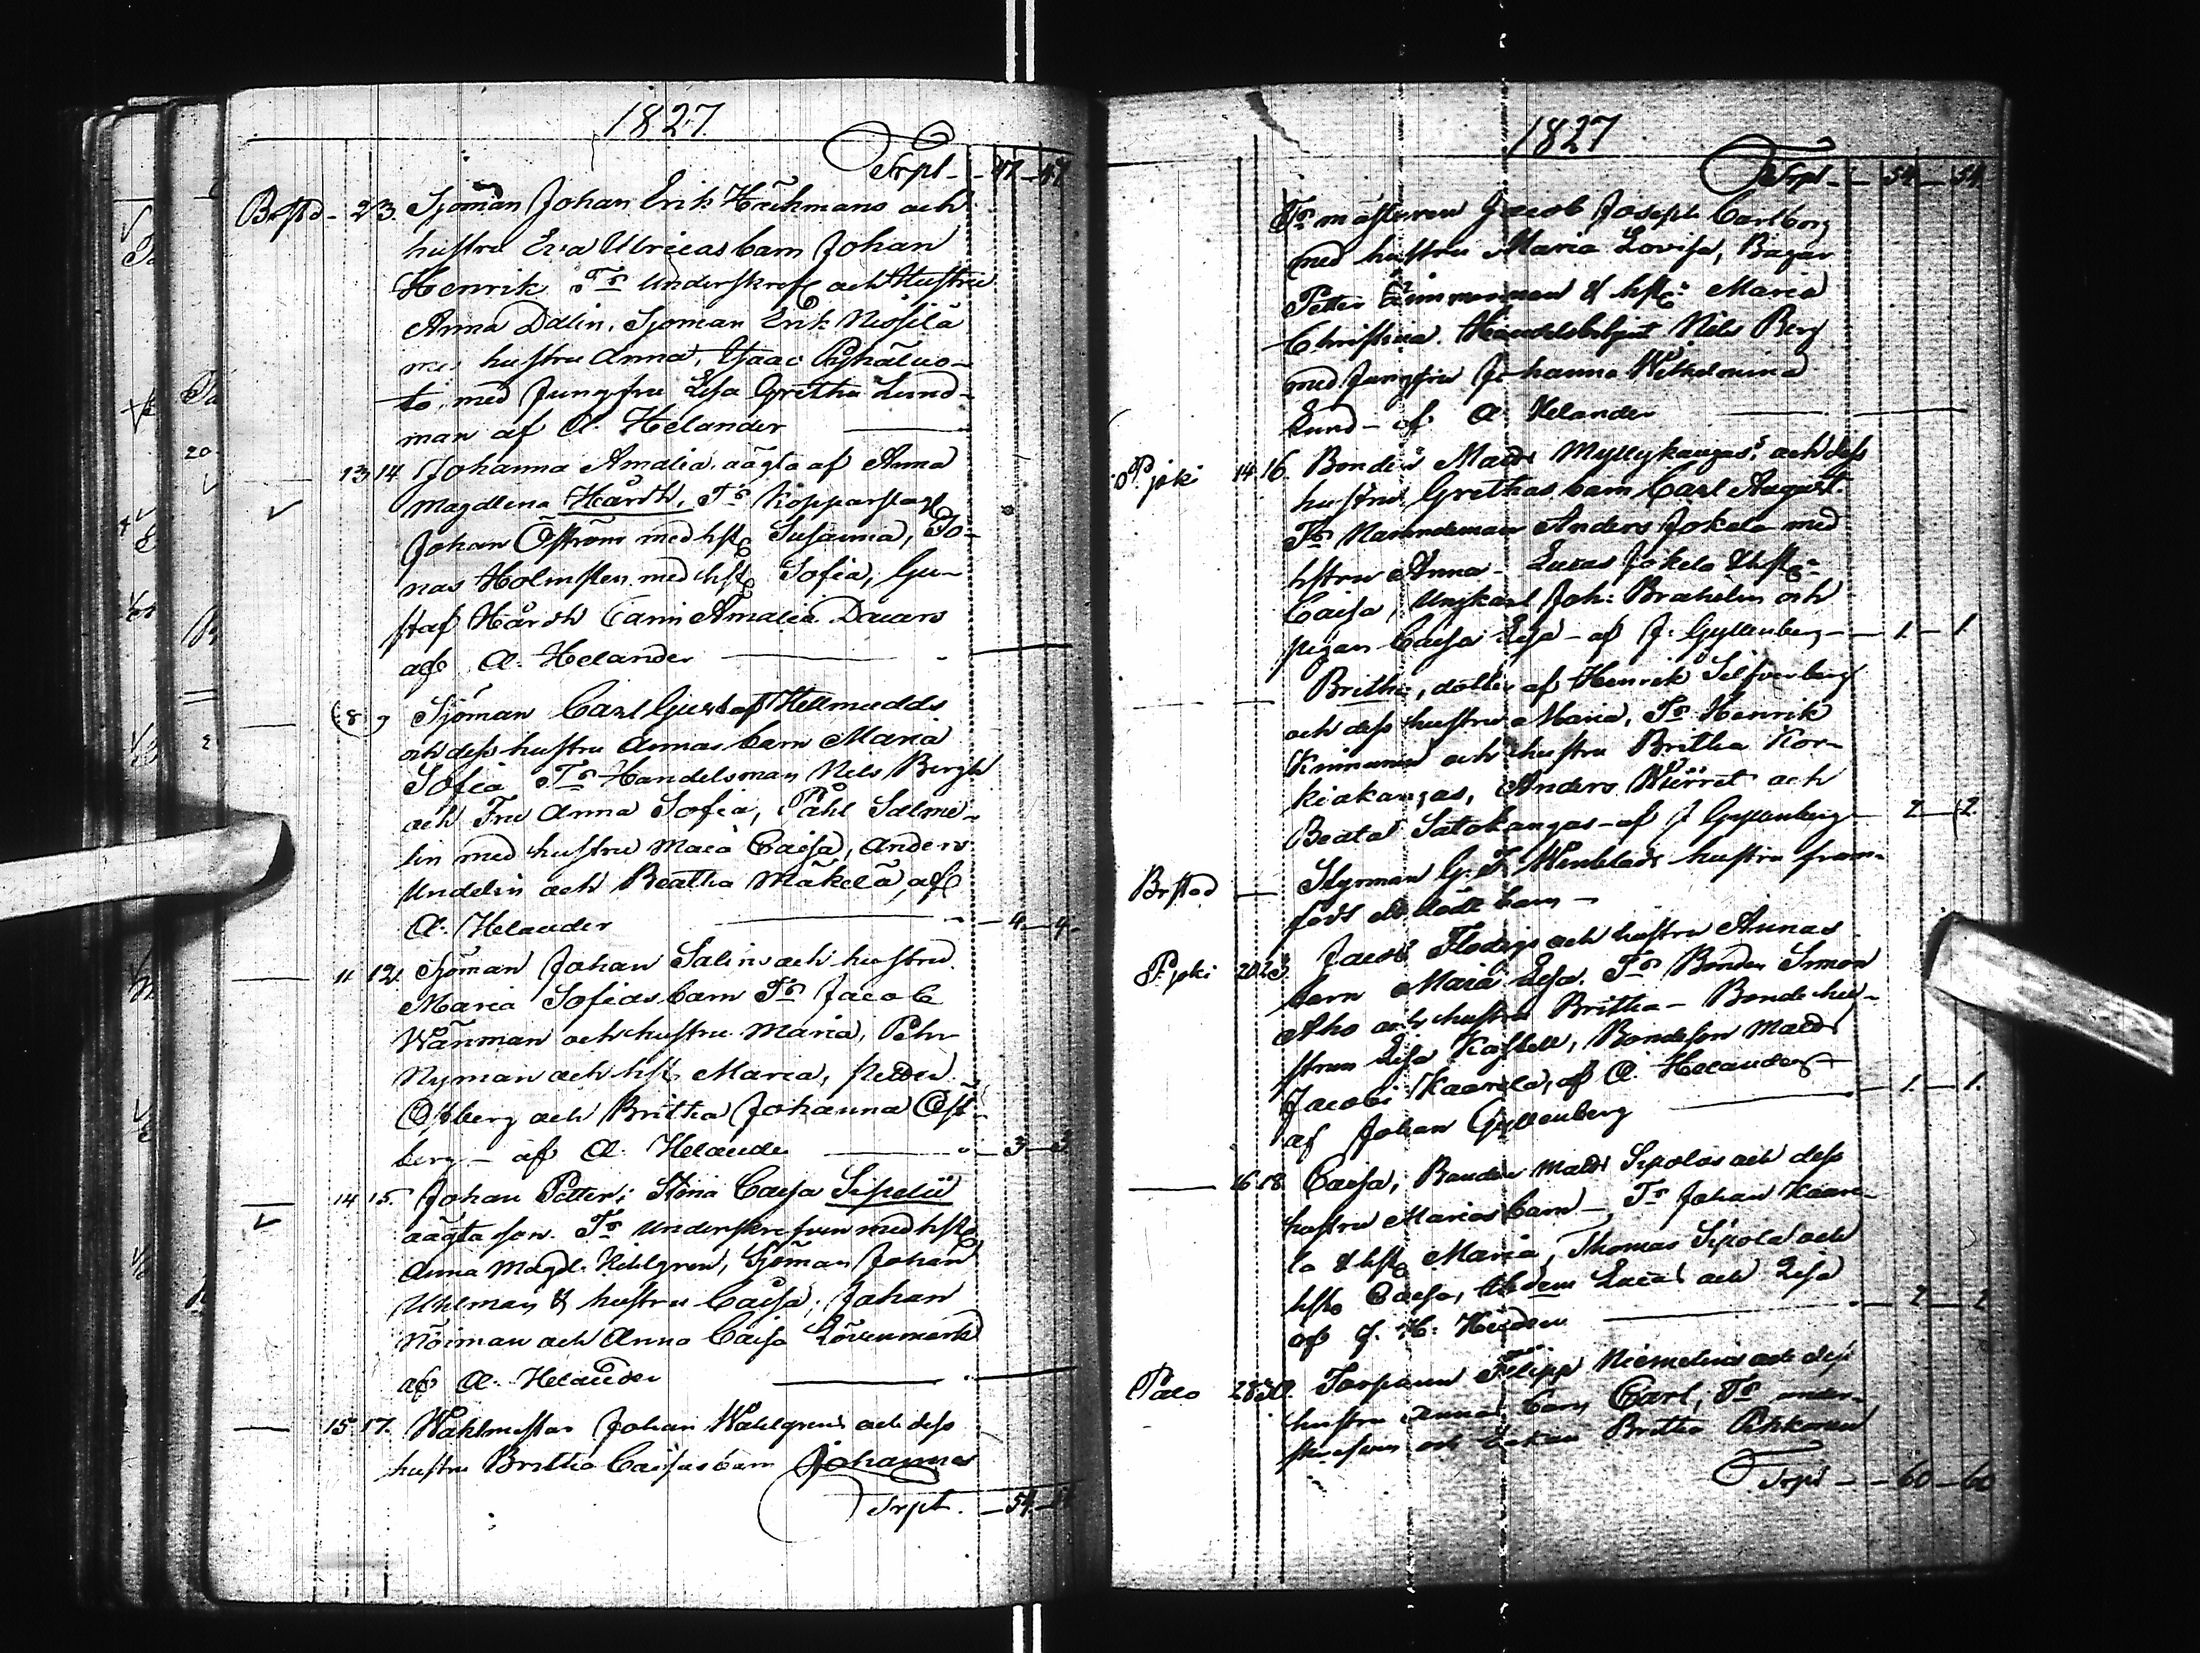 1827
Trpt - 47 - 47
Brstd - 2 3. Sjöman Johan Erik Häckmans och
hustru Eva Ulricas barn Johan
Henrik Trs Underskref och Hustru
Anna Dalin, Sjöman Erik Niskilä
med hustru Anna, Isaac Pyhäluo-
to, med Jungfru Lisa Gretha Lund-
man af A. Helander
13 14 Johanna Amalia oägta af Anna
Magdlena Hårdh, Trs Kopparslag
Johan Öström med hst Susanna, Jo-
nas Holmsten med hst Sofia, Gu-
staf Hårdh Amalia
af A. Helander
8 9 Sjöman Carl Gustaf Hellmudds
och dess hustru Annas barn Maria
Sofia Trs Handelsman Nils Bergh
och Fru Anna Sofia, Påhl Salme-
lin med hustru Maia Caisa, Anders
Undelin och Beatha Mäkelä, af
A. Helander - 4 - 4
11 12 Sjöman Johan Salins och hustru
Maria Sofias barn Trs Jacob
Wänman och hustru Maria, Pehr
Nyman och hst Maria,
Östberg och Britha Johanna Öst-
berg - af A. Helander - 3 - 3
14 15. Johan Petter, Stina Caisa
oägta son. Trs Underskrefven med hst
Anna Magd. Uhlgren, Sjöman Johan
Uhlman & hustru Caisa, Johan
Nöiman och Anna Caisa Lövenmark
af A. Helander
15 17. Wahlmestar Johan Wahlgrens och dess
hustru Britha Caisas barn Johannes
Trpt. - 54 - 54
1827
Trpt - 54 - 54
Trs mästaren Jacob Joseph Carlborg
med hustru Maria Lovisa, Bagar
Petter Zimmerman & hst: Maria
Christina. Handelsbetjnt Nils Berg
med Jungfru Johanna Wilhelmina
Lund - af A. Helander
Pjoki 14 16. Bonden Matts Myllykangas' och dess
hustru Grethas barn Carl August.
Trs Nämndeman Anders Jokela med
hstru Anna - Lucas Jokela & hst
Caisa, Ungkarl Joh: Brahelin och
pigan Caisa Lisa - af J. Gyllenberg - 1 - 1
Britha, dotter af Henrik Silfverberg
och dess hustru Maria, Trs Henrik
Knimann och hustru Britha Kor-
kiakangas, Anders Wirret och
Beata Satokangas - af J Gyllenberg - 2 - 2.
Brstad - Styrman G. F. Wenblads hustru fram-
födt ett dödt barn -
P.joki 20 23. Jacob Flodigs och hustru Annas
barn Maia Lisa. Trs Bonden Simon
Aho och hustru Britha - Bonde hu-
strun Lisa Kastell, Bondeson Matts
Jacobi Kaarela, af A. Helander
af Johan Gyllenberg - 1 - 1.
16 18 Caisa, Bonden Matts Sipolas och dess
hustru Marias barn - Trs Johan Kaare-
la & hst Maria, Thomas Sipola och
hst Caisa, Lucas och Lisa
af J. H. Heidman - 2 - 2
Palo 28 30. Torparen Filipp Niemeläs och dess
hustru Annas barn Carl, Trs under-
skrefven och Enkan Britha Pehkonen
Trpt - 60 - 60